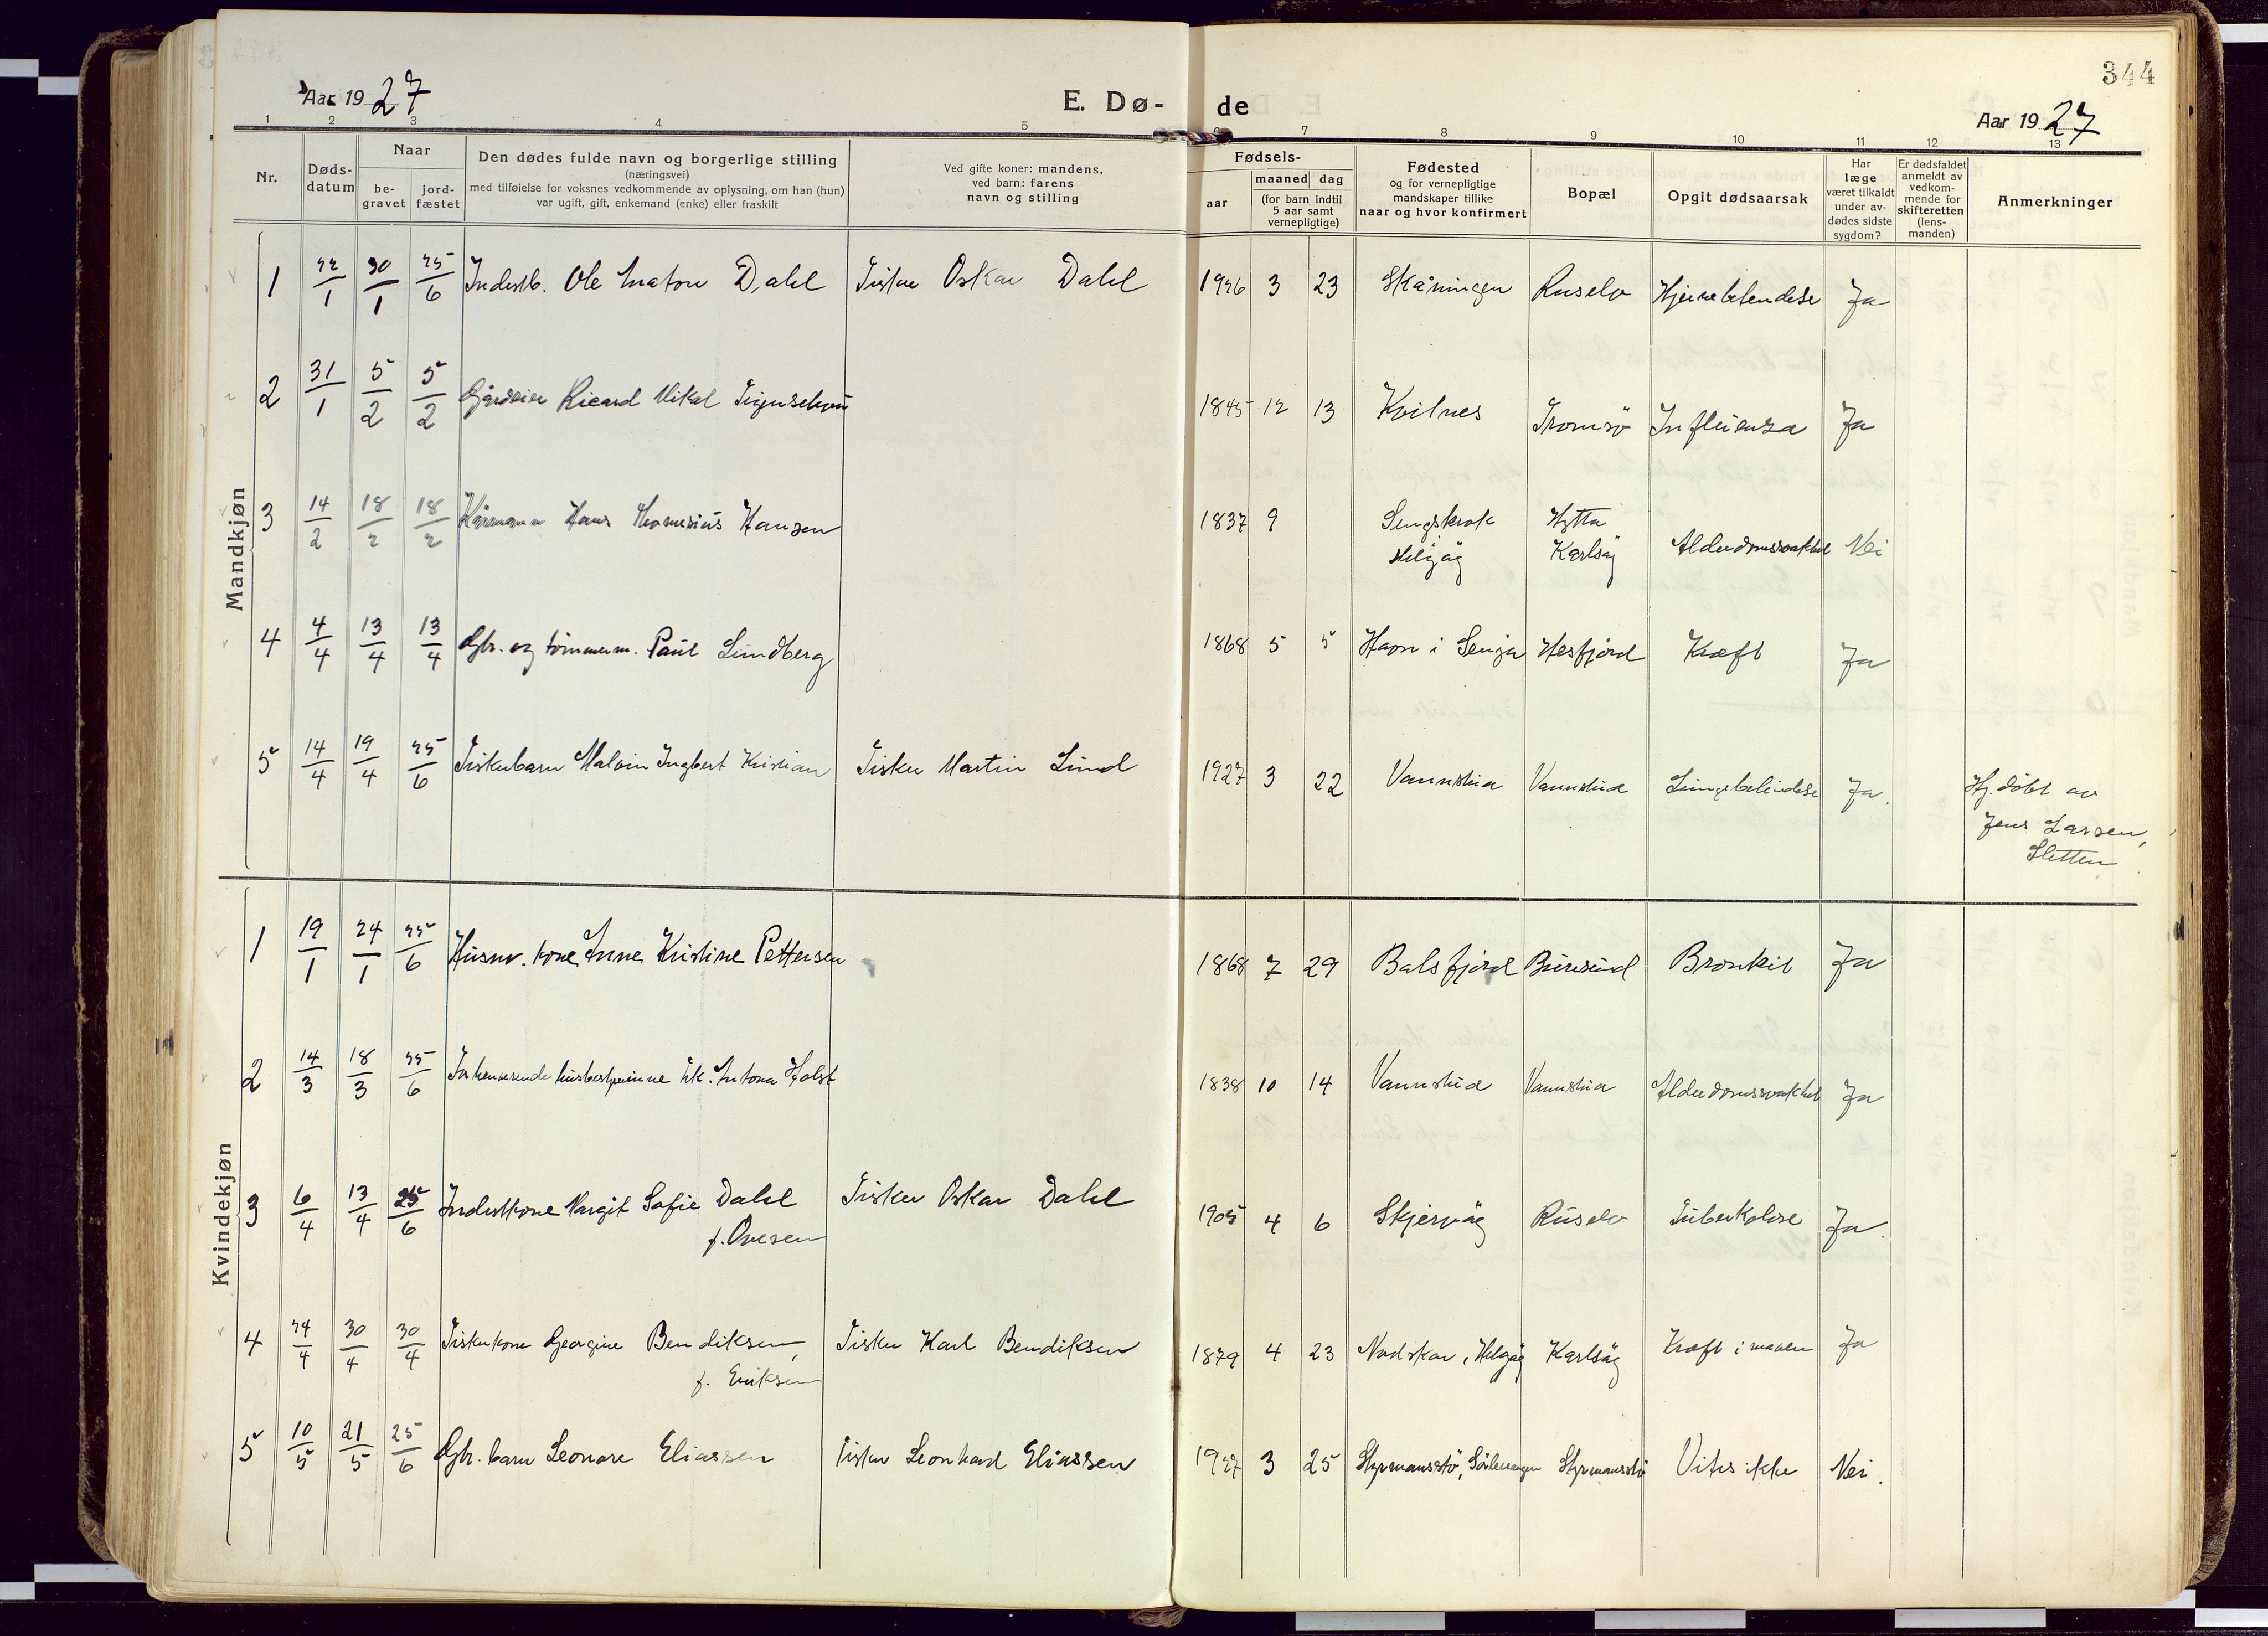 344
Aar 1927
E. Dø-
de
Aar 1927
1 2 3 4 5 6 7 8 9 10 11 12 13
Nr.
Døds-
datum
Naar
be-
gravet
jord-
fæstet
Den dødes fulde navn og borgerlige stilling
(næringsvei)
med tilføielse for voksnes vedkommende av oplysning, om han (hun)
var ugift, gift, enkemand (enke) eller fraskilt
Ved gifte koner: mandens,
ved barn: farens
navn og stilling
Fødsels-
aar
maaned dag
(for barn indtil
5 aar samt
vernepligtige)
Fødested
og for vernepligtige
mandskaper tillike
naar og hvor konfirmert
Bopæl
Opgit dødsaarsak
Har
læge
været tilkaldt
under av-
dødes sidste
sygdom?
Er dødsfaldet
anmeldt av
vedkom-
mende for
skifteretten
(lens-
manden)
Anmerkninger
Mandkjøn
1 22/1 30/1 25/6 Inderstb. Ole Dahl Fisker Oskar Dahl 1926 3 23 Skåningen Ruselv Hjernebetendelse Ja
2 31/1 5/2 5/2 Gårdeier Ricard Mikal 1845 12 13 Kvitnes Tromsö Influensa Ja
3 14/2 18/2 18/2 Kårmann Hans Hansen 1837 9 Sengskrok Hytta
Helgöy Karlsöy Alderdomssvakhet Nei
4 4/4 13/4 13/4 Gbr. og tömmerm. Paul Lundberg 1868 5 5 Havn i Senja Hesfjord Kræft Ja
5 14/4 19/4 25/6 Fiskerbarn Malvin Ingbert Kristian Fisker Martin Lund 1927 3 22 Vannstua Vannstua Lungebetendelse Ja. Hj. döbt av
Jens Larsen,
Sletten
Kvindekjøn
1 19/1 24/1 25/6 Husm. kone Anne Kristine Pettersen 1868 7 29 Balsfjord Buresund Bronkit Ja
2 14/3 18/3 25/6 Forhenværende husbestyrerinne frk. Antona Holst 1838 10 14 Vannstua Vannstua Alderdomssvakhet Ja
3 6/4 13/4 25/6 Inderstkone Margit Sofie Dahl Fisker Oskar Dahl 1905 4 6 Skjervöy Ruselv Tuberkolose Ja.
f. Ovesen
4 24/4 30/4 30/4 Fiskerkone Georgine Bendiksen, Fisker Karl Bendiksen 1879 4 23 Nordskar, Helgöy Karlsöy Kræft i maven Ja
f. Eriksen
5 10/5 21/5 25/6 Gbr. barn Leonore Eliassen Fisker Leonhard Eliassen 1927 3 25 Styrmansstö, Sörlenangen Styrmansstö Vites ikke Nei.